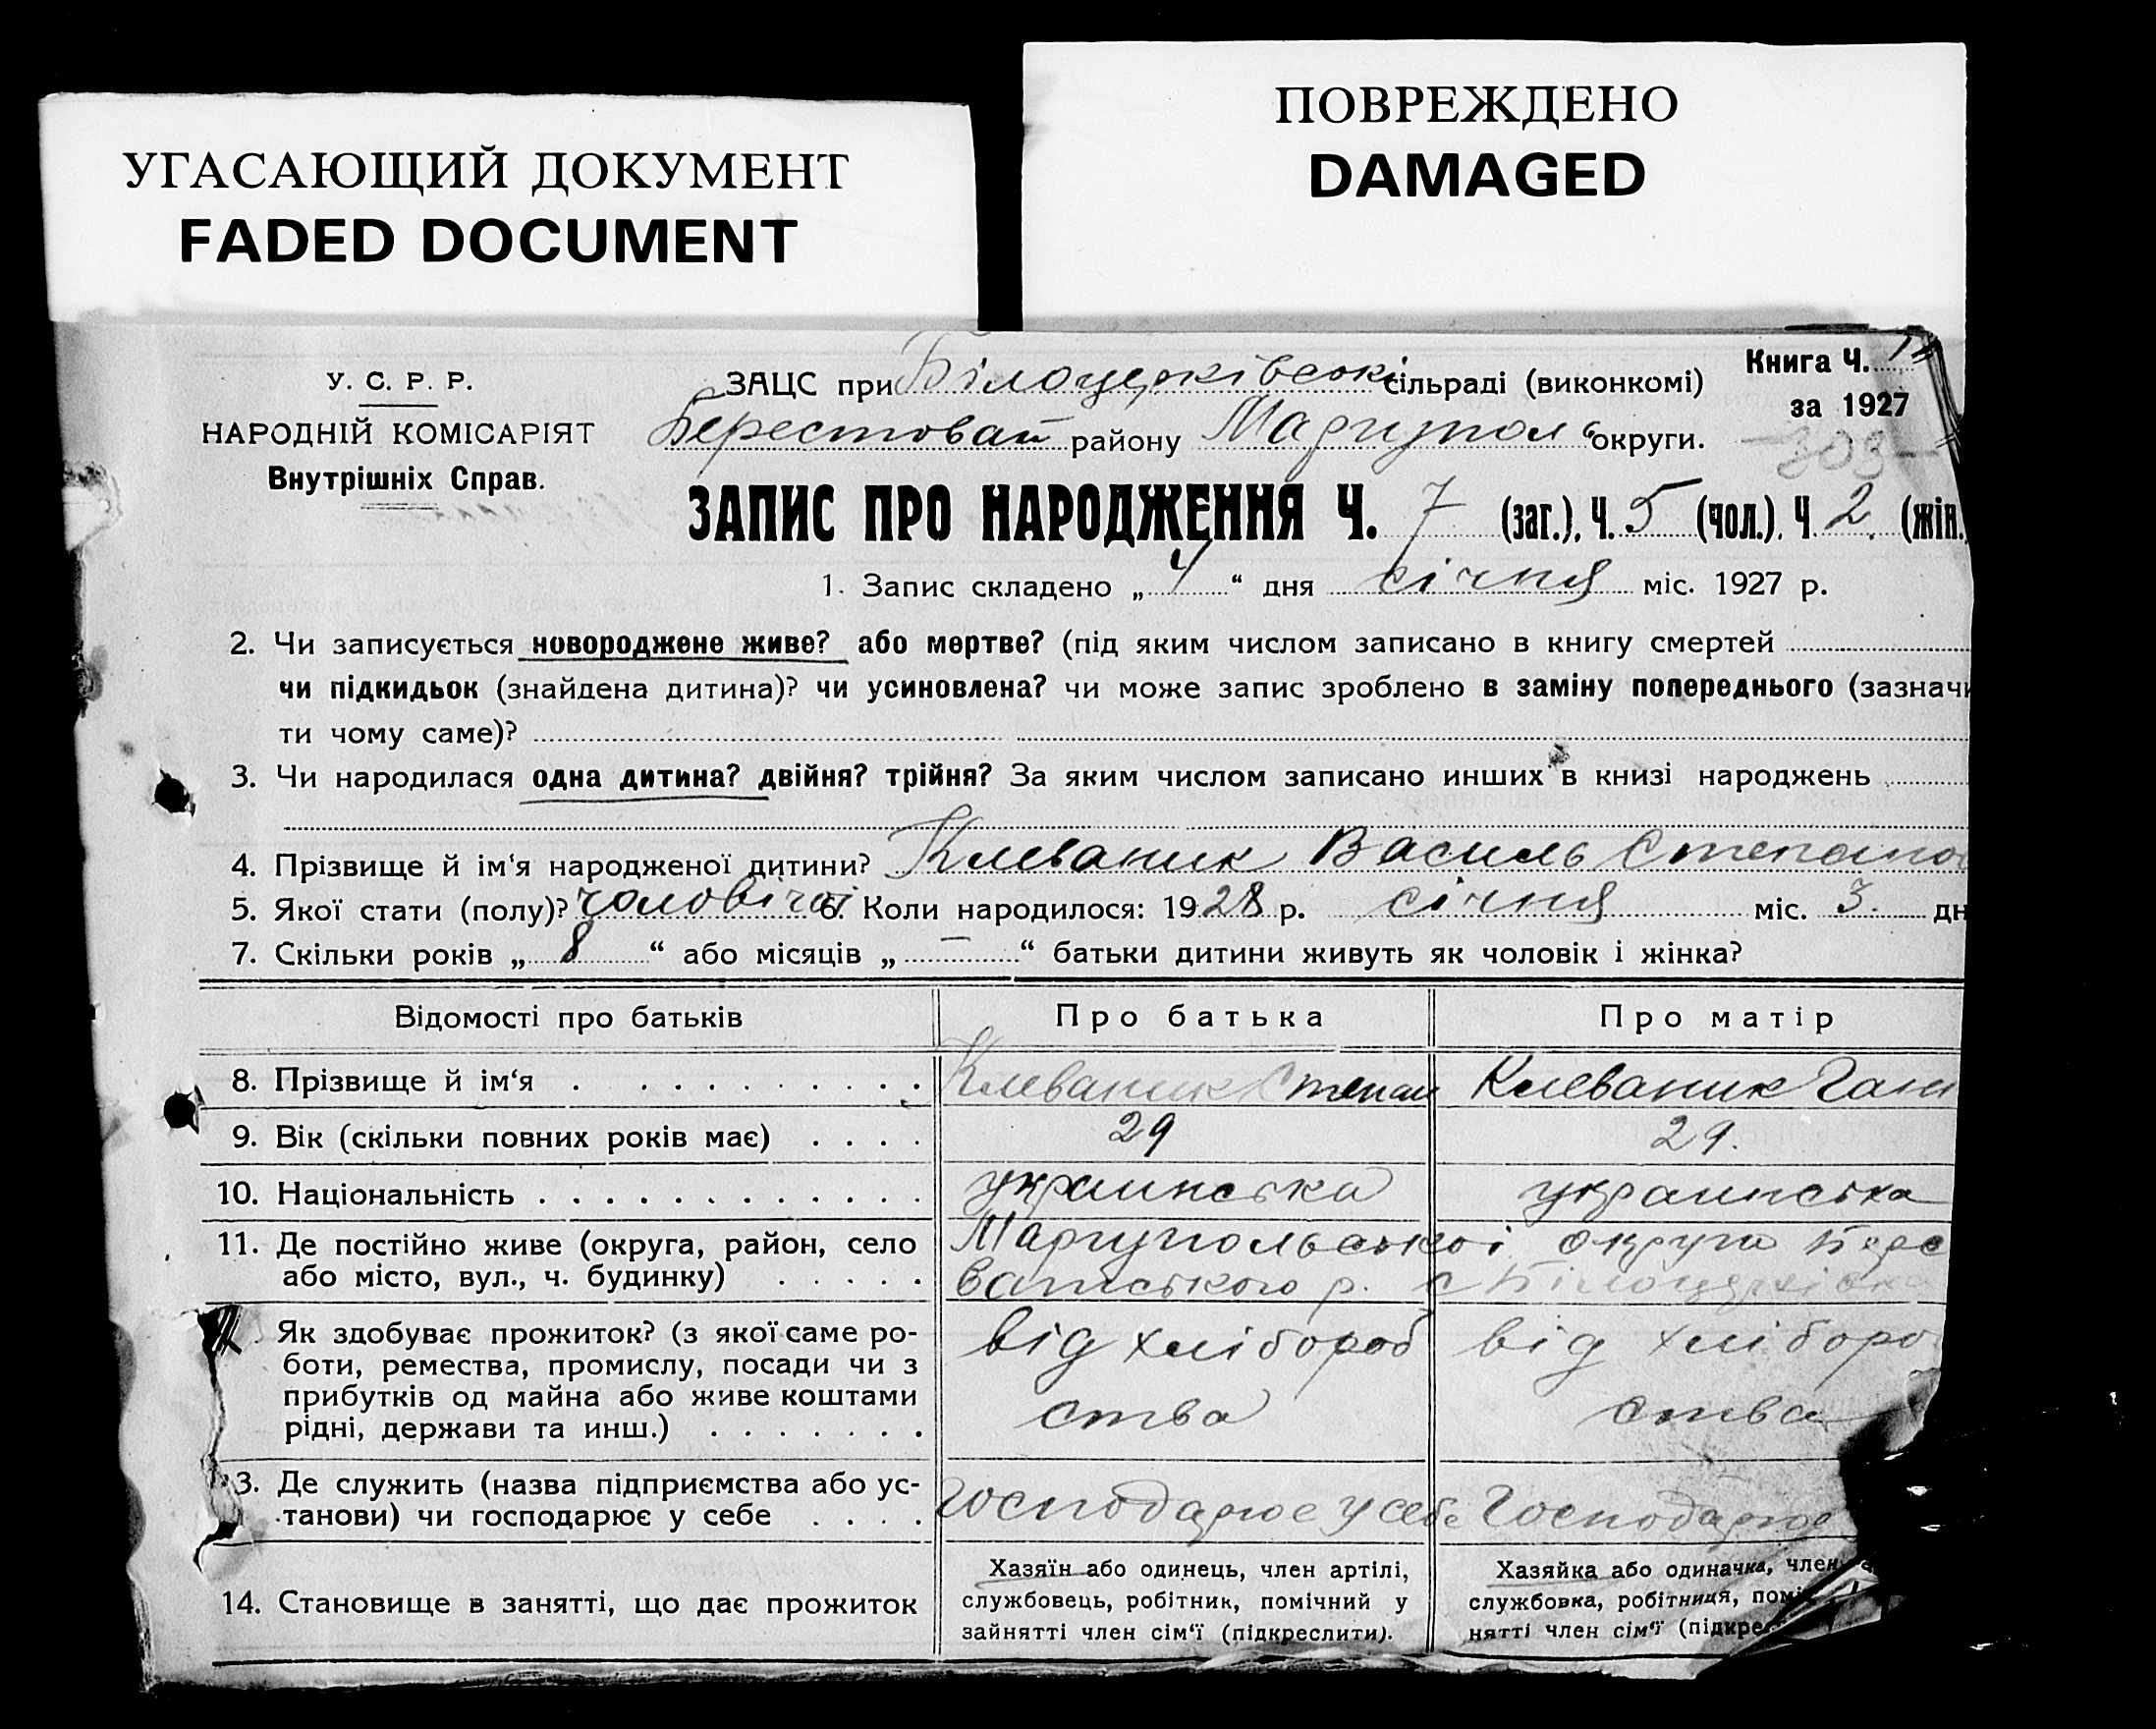 УГАСАЮЩИЙ ДОКУМЕНТ
FADED DOCUMENT
ПОВРЕЖДЕНО
DAMAGED
У. С. Р. Р.
НАРОДНІЙ КОМІСАРІЯТ
Внутрішніх Справ.
ЗАЦС при Білоцерківські сільраді (виконкомі)
Берестоваи району Маріупол округи.
Книга Ч.
за 1927
303
ЗАПИС ПРО НАРОДЖЕННЯ Ч. 7 (заг.), Ч. 5 (чол.), Ч. 2. (жін.)
1. Запис складено „ 4 “ дня січня міс. 1927 р.
2. Чи записується новороджене живе? або мертве? (під яким числом записано в книгу смертей
чи підкидьок (знайдена дитина)? чи усиновлена? чи може запис зроблено в заміну попереднього (зазначи
ти чому саме)?
3. Чи народилася одна дитина? двійня? трійня? За яким числом записано инших в книзі народжень
4. Прізвище й ім‘я народженої дитини? Клеваник Василь Степано
5. Якої стати (полу)? чоловічої 6. Коли народилося: 1928 р. січня міс. 3. дн
7. Скільки років „ 8 “ або місяців „ — “ батьки дитини живуть як чоловік і жінка?
Відомості про батьків Про батька Про матір
8. Прізвище й ім‘я Клеваник Степан Клеваник Ган
9. Вік (скільки повних років має) 29 29.
10. Національність украинська украинська
11. Де постійно живе (округа, район, село
або місто, вул., ч. будинку)
Маріупольської округи Бере
ватського р. с Білоцерківка
Як здобуває прожиток? (з якої саме ро-
боти, ремества, промислу, посади чи з
прибутків од майна або живе коштами
рідні, держави та инш.)
від хлібороб
ства
від хліборо
ства
3. Де служить (назва підприємства або ус-
танови) чи господарює у себе
Господарює у себе Господарює
14. Становище в занятті, що дає прожиток
Хазяїн або одинець, член артілі,
службовець, робітник, помічний у
зайнятті член сім‘ї (підкреслити).
Хазяйка або одиначка, член
службовка, робітниця, помі
нятті член сім‘ї (підкре